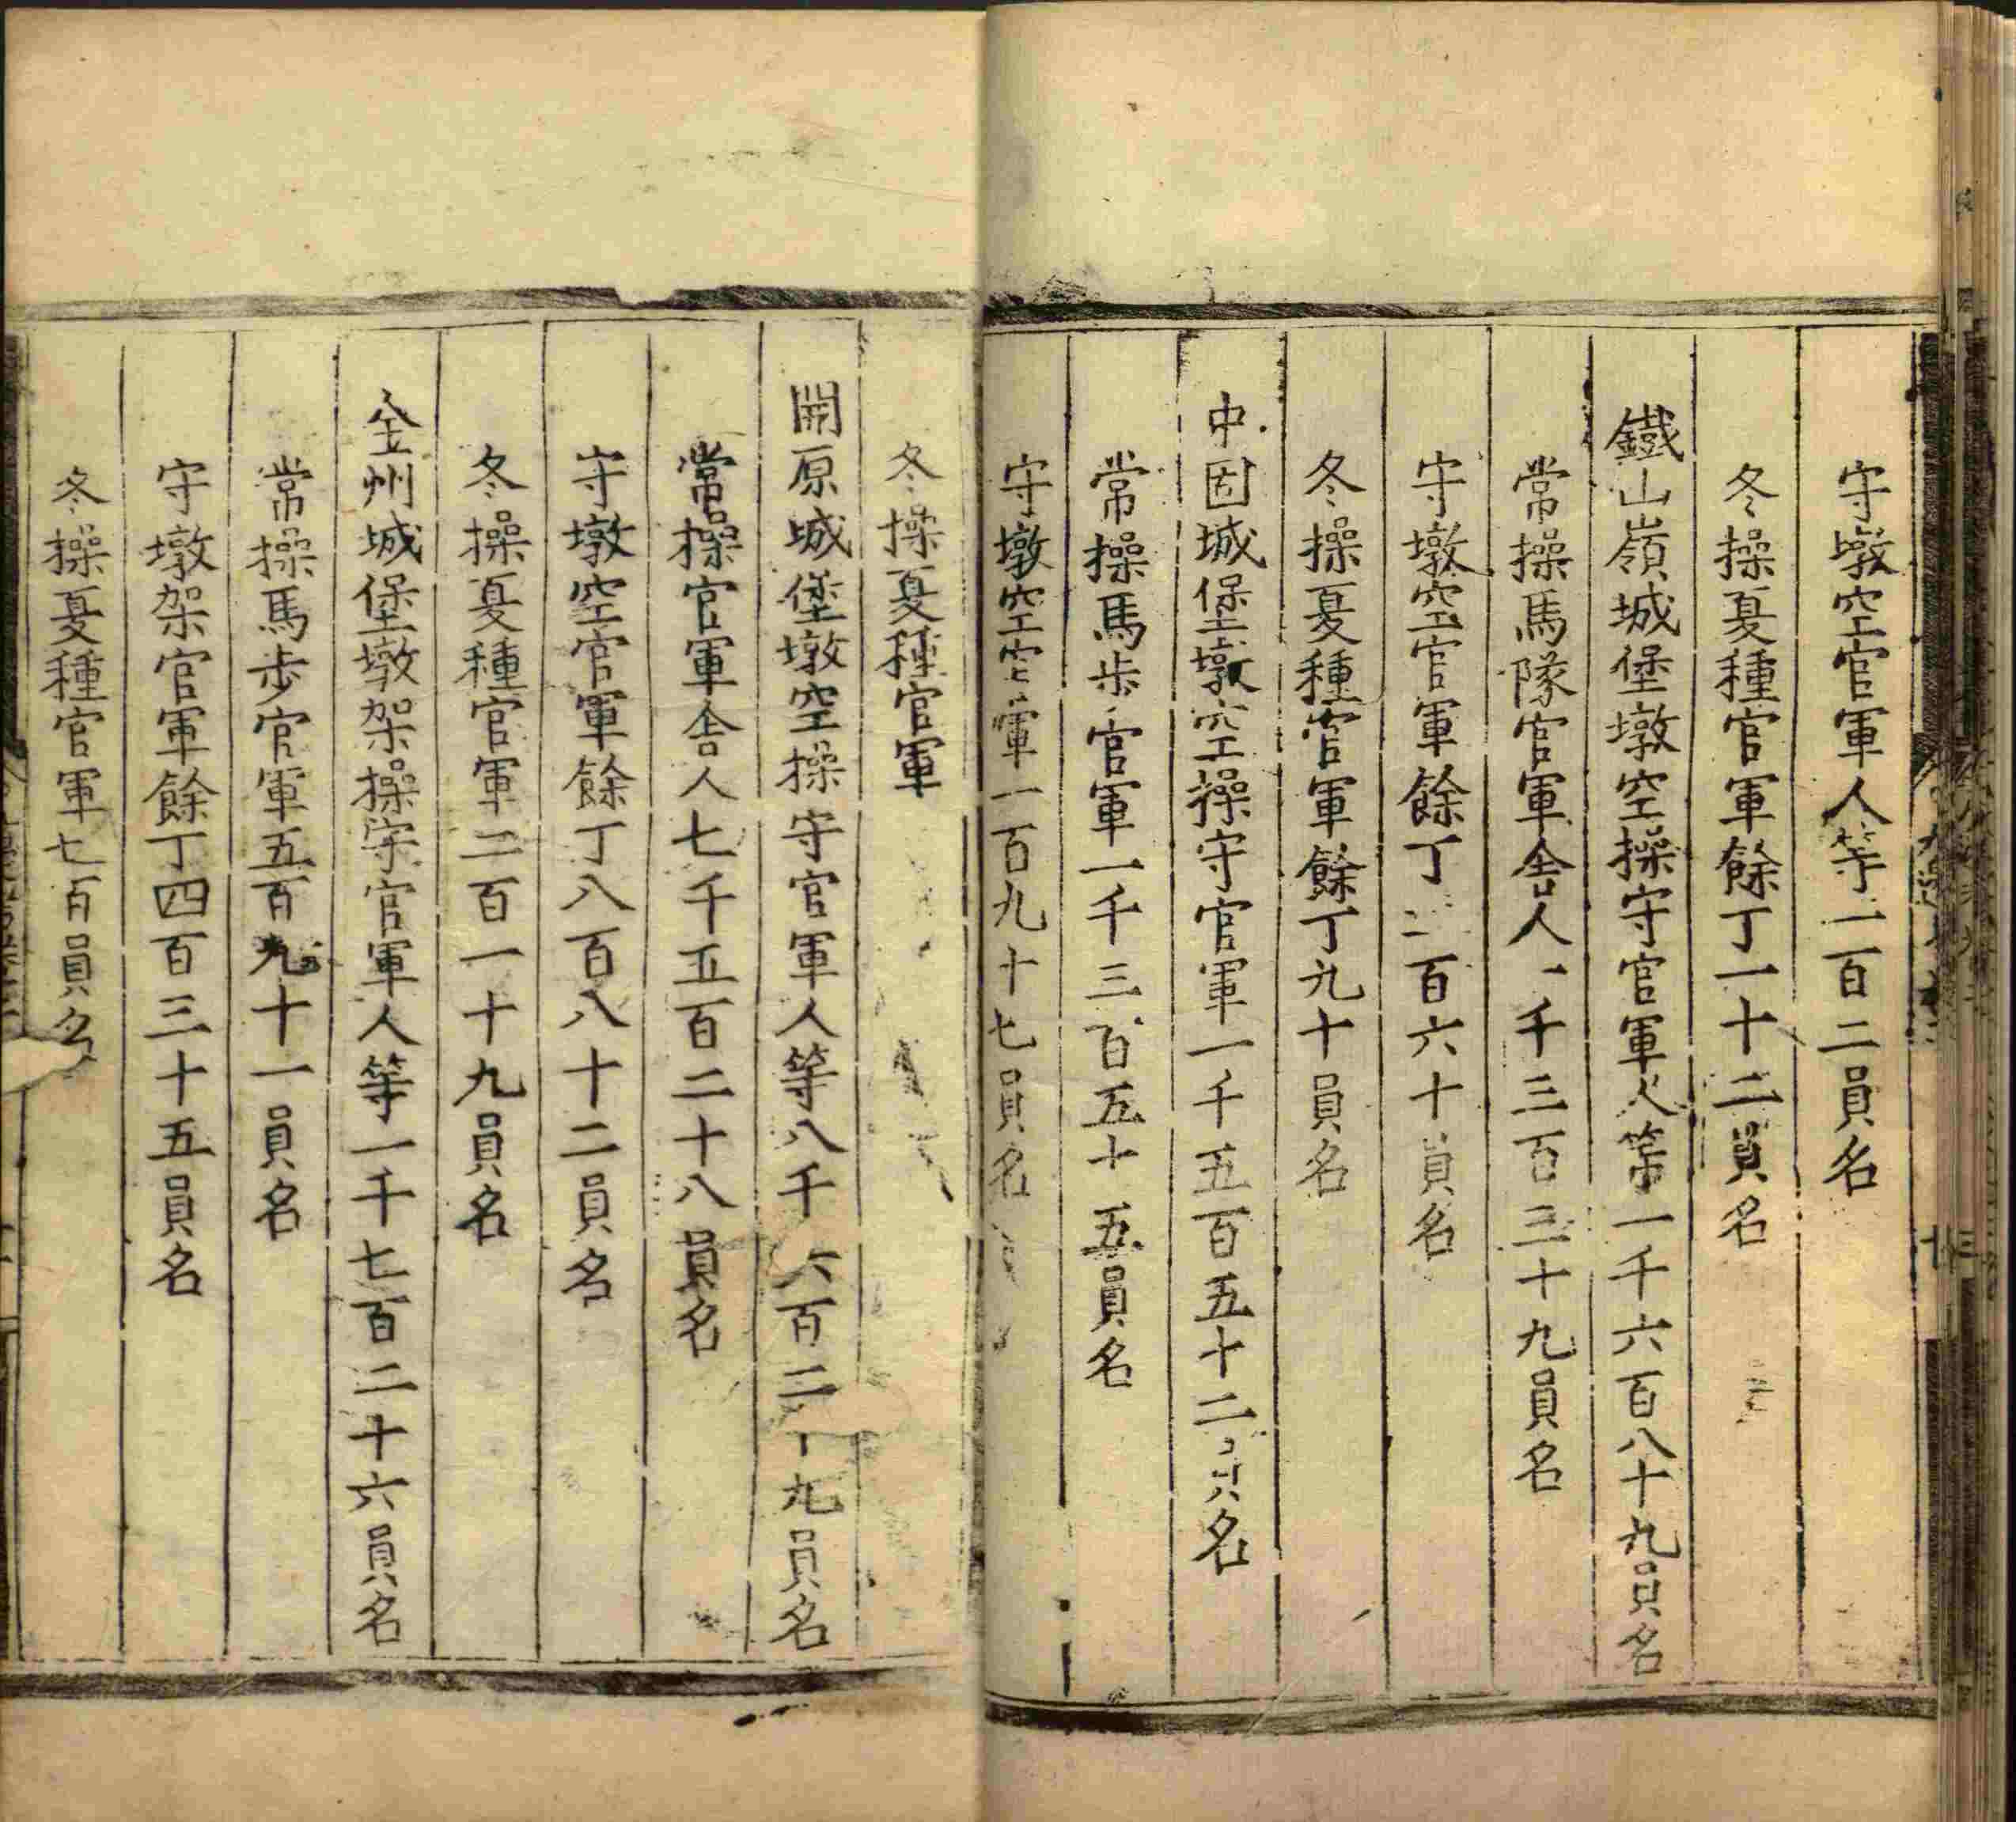 守墩空官軍人等一百二員名
冬操夏種官軍餘丁一十二員名
鐵山嶺城堡墩空操守官軍人等一千六百八十九員名
常操馬隊官軍舍人一千三百三十九員名
守墩空官軍餘丁二百六十員名
冬操夏種官軍餘丁九十員名
中固城堡墩空操守官軍一千五百五十二員名
常操馬步官軍一千三百五十五員名
守墩空官軍一百九十七員名
冬操夏種官軍
開原城堡墩空操守官軍人等八千六百二十九員名
常操官軍舍人七千五百二十八員名
守墩空官軍餘丁八百八十二員名
冬操夏種官軍二百一十九員名
金州城堡墩架操守官軍人等一千七百二十六員名
常操馬步官軍五百九十一員名
守墩架官軍餘丁四百三十五員名
冬操夏種官軍七百員名